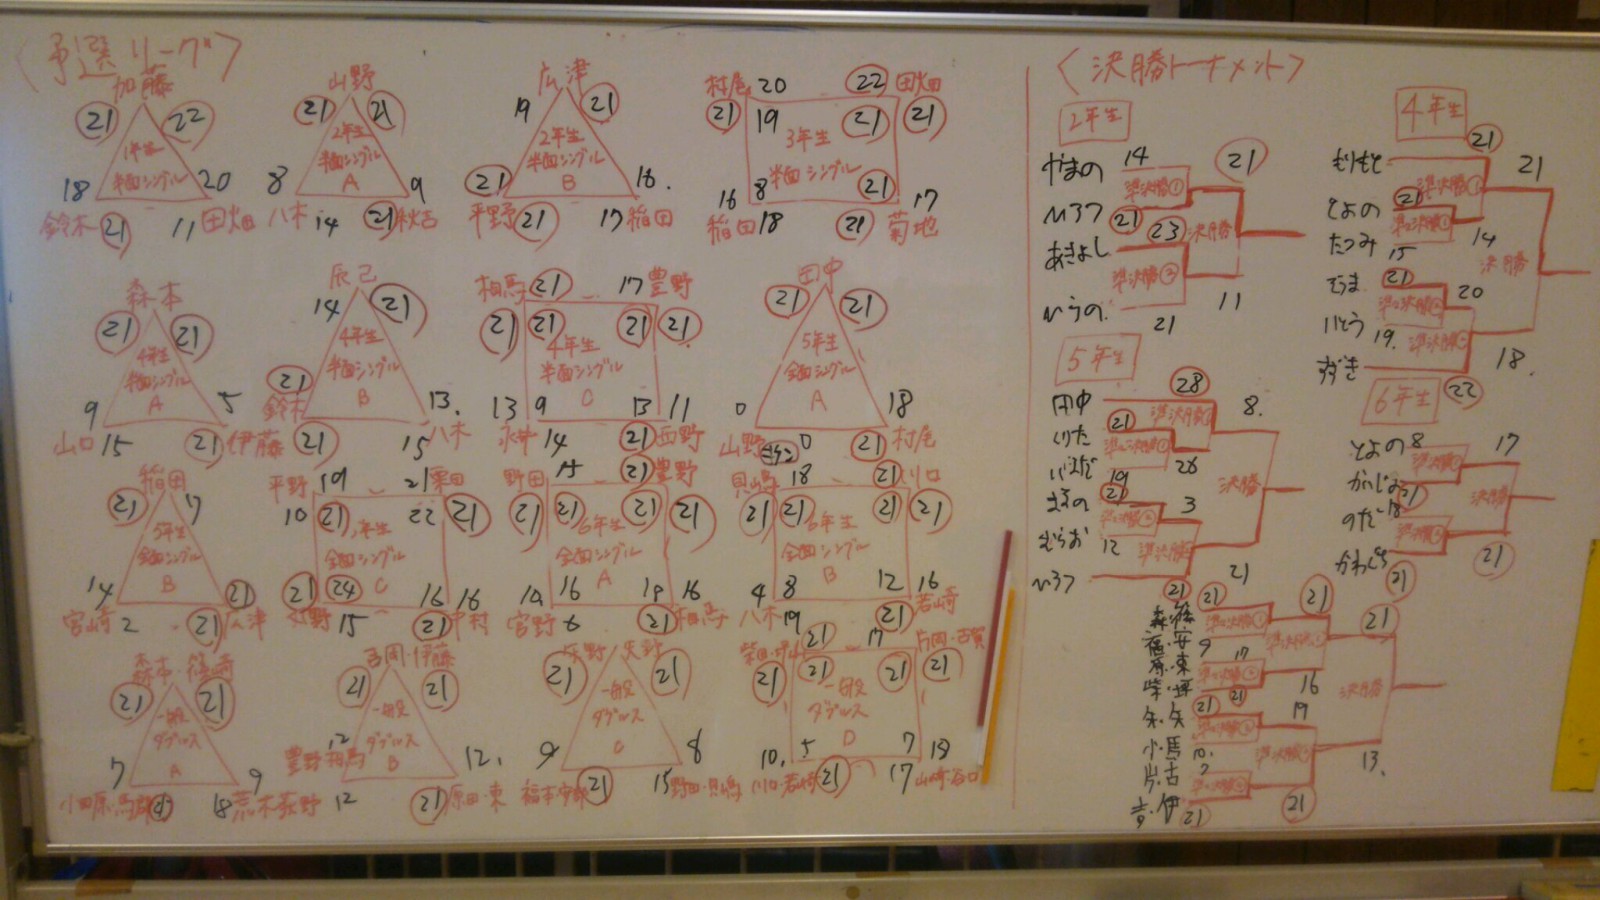 〈予選リーグ〉
加藤
21 22
1年生
半面シングル
18 20
鈴木 21 11 田畑
山野
21 21
2年生
半面シングル
A
8 9
八木 14 21 秋吉
広津
19 21
2年生
半面シングル
B
21 16.
平野 21 17 稲田
村尾 20 22 田畑
21 19 21 21
3年生
半面シングル
16 8 21 17
稲田 18 21 菊地
森本
21 21
4年生
半面シングル
A
9 5
山口 15 21 伊藤
辰己
14 21
4年生
半面シングル
B
21 13.
鈴木 21 15 八木
相馬 21 17 豊野
21 21 21 21
4年生
半面シングル
C
13 9 13 11
永井 14 21 西野
田中
21 21
5年生
全面シングル
A
0 18
山野 0 21 村尾
稲田
21 17
5年生
全面シングル
B
14 21
宮崎 2 21 広津
平野 19 21 栗田
10 21 22 21
年生
全面シングル
C
21 24 16 16
15 21 中村
野田 15 21 豊野
21 21 21 21
6年生
全面シングル
A
16 19 16
宮野 6 21 相馬
貝嶋 18 21 川口
21 21 21 21
6年生
全面シングル
B
4 8 12 16
八木 19 21 若崎
森本・篠崎
21 21
一般
ダブルス
A
7 9
小田原・馬郡 21 18 荒木・荻野
吉岡・伊藤
21 21
一般
ダブルス
B
12 12.
豊野・相馬 12 21 原田・東
矢野
21 21
一般
ダブルス
C
9 8
21 15 野田・貝嶋
21 17 片岡・古賀
21 21 21 21
一般
ダブルス
D
10. 5 7 19
川口・若崎 21 17 山崎・谷口
〈決勝トーナメント〉
2年生
やまの 14 21
準決勝①
ひろつ 21
あきよし 23 決勝
準決勝②
ひらの 21 11
4年生
もりもと 21 21
準決勝①
とよの 21
準々決勝①
たつみ 15 14
決勝
そうま 21 20
準々決勝②
いとう 19. 準決勝②
すずき 22 18.
5年生
田中 28 8.
準決勝①
くりた 21
準々決勝①
いなだ 19 26
決勝
21 3
準々決勝②
むらお 12 準決勝②
ひろつ 21 21
6年生
とよの 8 17
準決勝①
21 決勝
のだ 18
準決勝②
かわぐち 21 21
森・篠 21 21 21
準々決勝①
福・安 9 準決勝①
原・東 17
準々決勝②
柴・坪 21 16
決勝
矢・矢 21 19
準々決勝③
小・馬 10. 準決勝② 13.
片・古 7
準々決勝④
吉・伊 21 21